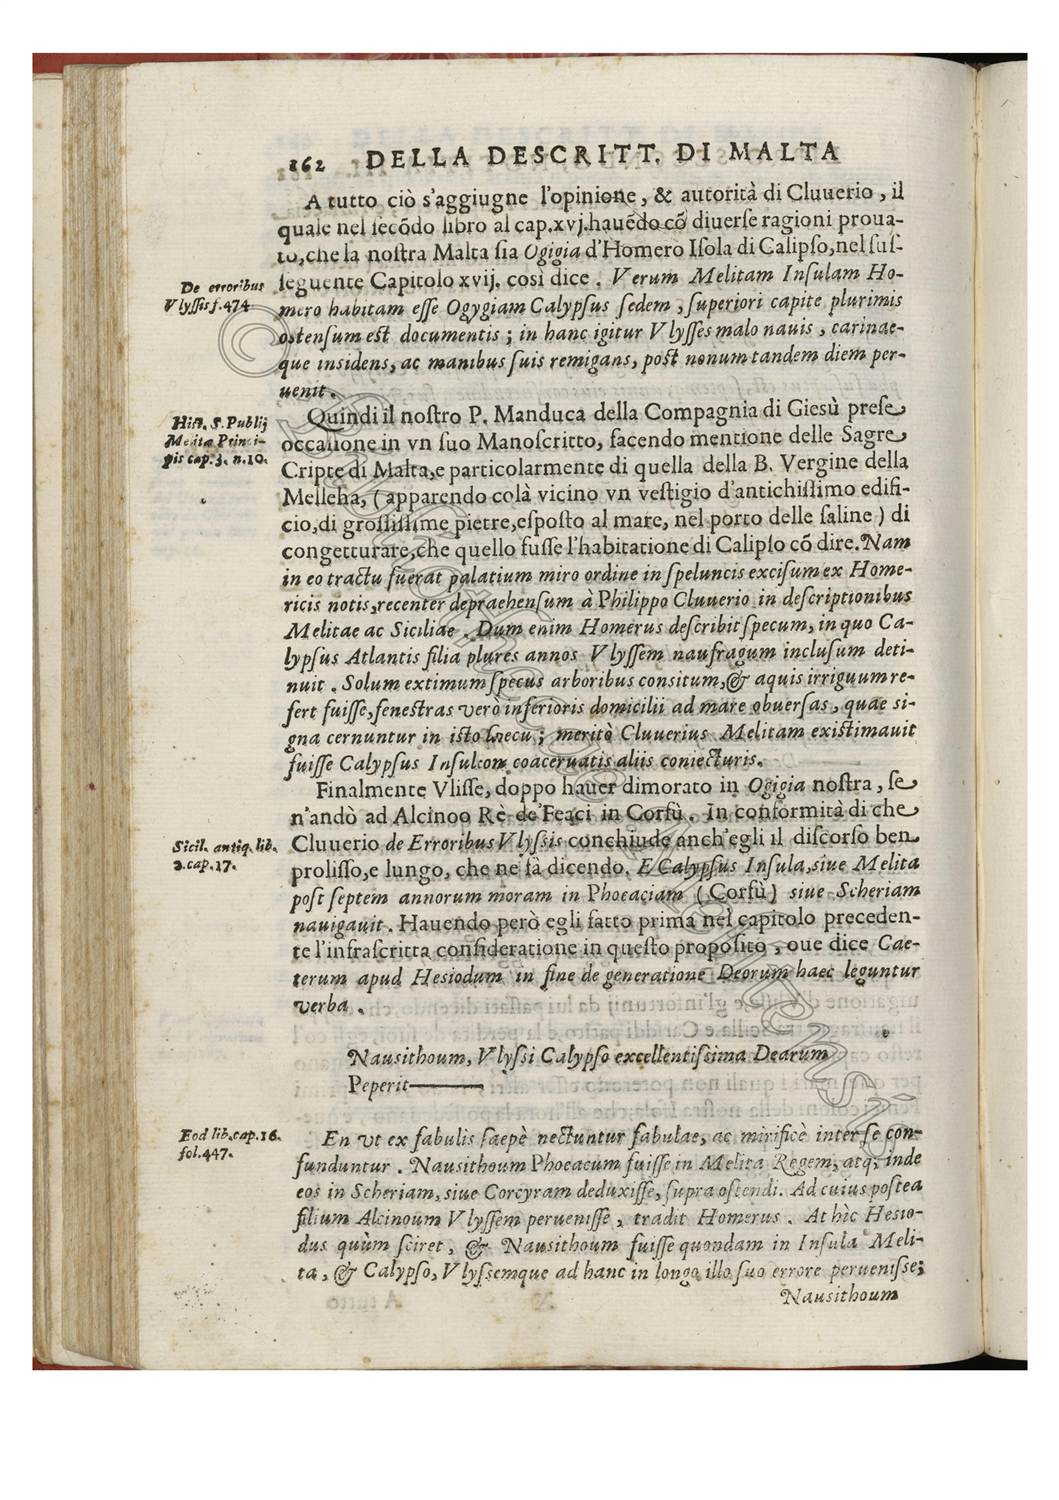 162 DELLA DESCRITT. DI MALTA
A tutto ciò s'aggiugne l'opinione, & autorità di Cluuerio, il
quale nel secōdo libro al cap.xvj.hauēdo cō diuerse ragioni proua-
to,che la nostra Malta sia Ogigia d'Homero Isola di Calipso,nel sus-
seguente Capitolo xvij. così dice. Verum Melitam Insulam Ho-
De erroribus
Vlyssis f.474
mero habitam esse Ogygiam Calypsus sedem, superiori capite plurimis
ostensum est documentis; in hanc igitur Vlysses malo nauis, carinae-
que insidens, ac manibus suis remigans, post nonum tandem diem per-
uenit.
Hist. S. Publij
Melitæ Princi-
pis cap.3. n.10.
Quindi il nostro P. Manduca della Compagnia di Giesù prese
occasione in vn suo Manoscritto, facendo mentione delle Sagre
Cripte di Malta,e particolarmente di quella della B. Vergine della
Melleha, (apparendo colà vicino vn vestigio d'antichissimo edifi-
cio,di grossissime pietre,esposto al mare, nel porto delle saline) di
congetturare,che quello fusse l'habitatione di Calipso cō dire. Nam
in eo tractu fuerat palatium miro ordine in speluncis excisum ex Home-
ricis notis,recenter depraehensum à Philippo Cluuerio in descriptionibus
Melitae ac Siciliae. Dum enim Homerus describit specum, in quo Ca-
lypsus Atlantis filia plures annos Vlyssem naufragum inclusum deti-
nuit. Solum extimum specus arboribus consitum,& aquis irriguum re-
fert fuisse,fenestras verò inferioris domicilii ad mare obuersas, quae si-
gna cernuntur in isto specu; meritò Cluuerius Melitam existimauit
fuisse Calypsus Insulam, coaceruatis aliis coniecturis.
Finalmente Vlisse, doppo hauer dimorato in Ogigia nostra, se
n'andò ad Alcinoo Rè de'Feaci in Corfù. In conformità di che
Sicil. antiq. lib.
2.cap.17.
Cluuerio de Erroribus Vlyssis conchiude anch'egli il discorso ben
prolisso,e lungo, che ne fà dicendo. E Calypsus Insula,siue Melita
post septem annorum moram in Phoeaciam (Corfù) siue Scheriam
nauigauit. Hauendo però egli fatto prima nel capitolo preceden-
te l'infrascritta consideratione in questo proposito, oue dice Cae-
terum apud Hesiodum in fine de generatione Deorum haec leguntur
verba.
Nausithoum, Vlyssi Calypso excellentissima Dearum
Peperit———
Eod lib.cap.16.
fol.447.
En vt ex fabulis saepè nectuntur fabulae, ac mirificè inter se con-
funduntur. Nausithoum Phoeacum fuisse in Melita Regem, atq; inde
eos in Scheriam, siue Corcyram deduxisse, supra ostendi. Ad cuius postea
filium Alcinoum Vlyssem peruenisse, tradit Homerus. At hìc Hesio-
dus quùm sciret, & Nausithoum fuisse quondam in Insula Meli-
ta, & Calypso, Vlyssemque ad hanc in longo illo suo errore peruenisse;
Nausithoum